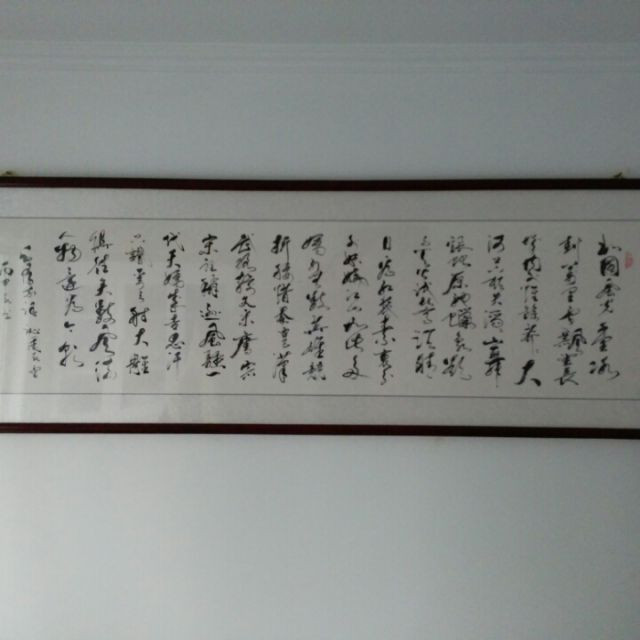 北国风光千里冰
封万里雪飘望长
城内外惟余莽莽大
河上下顿失滔滔山舞
银蛇原驰蜡象欲与
天公试比高须晴
日看红装素裹
分外妖娆江山如此多
娇引无数英雄竞
折腰惜秦皇汉
武略输文采唐宗
宋祖稍逊风骚一
代天骄成吉思汗
只识弯弓射大雕
俱往矣数风流
人物还看今朝